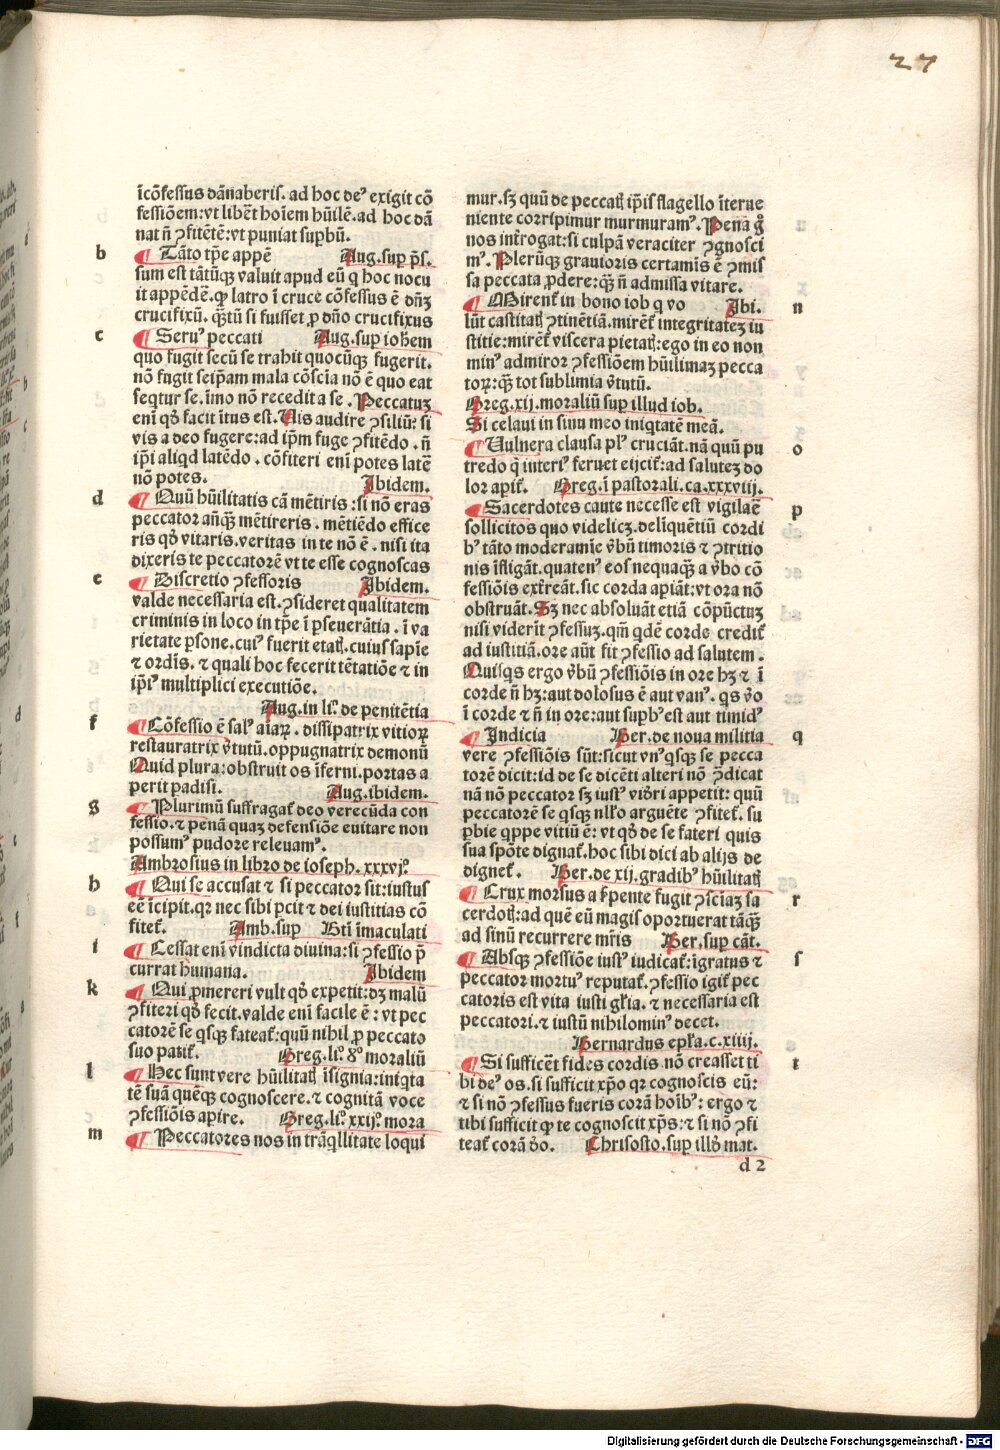 27
īcōfessus dānaberis. ad hoc deꝰ exigit cō
fessiōem: vt liberꝫ hoīem hūilē. ad hoc dā
nat nō ꝯfitētē: vt puniat supbū.
b ¶ Tāto tꝑe appē Aug. suꝑ pš.
sum est tātūqꝫ valuit apud eū q hoc nocu
it appēdē. ꝙ latro ī cruce cōfessus ē dn̄ꝫ
crucifixū. qꝫtū si fuisset ꝓ dn̄o crucifixus
c ¶ Seruꝰ peccati Aug. suꝑ iohem
quo fugit secū se trahit quocūqꝫ fugerit.
nō fugit seipꝫam mala cōscīa nō ē quo eat
seqtur se. imo nō recedit a se. Peccatuꝫ
enī qđ facit ītus est. Uis audire ꝯsiliū: si
vis a deo fugere: ad ip̄m fuge ꝯfitēdo. n̄
ip̄i aliqd latēdo. cōfiteri enī potes latē
nō potes. Ibidem.
d ¶ Quū hūilitatis cā mētiris: si nō eras
peccator an̄qꝫ mētireris. mētiēdo effice
ris qđ vitaris. veritas in te nō ē. nisi ita
dixeris te peccatorē vt te esse cognoscas
e ¶ Discretio ꝯfessoris Ibidem.
valde necessaria est. ꝯsideret qualitatem
criminis in loco in tꝑe ī ꝑseuerātia. ī va
rietate ꝑsone. cuiꝰ fuerit etatꝭ. cuius sapīe
⁊ ordīs. ⁊ quali hoc fecerit tētatiōe ⁊ in
ip̄iꝰ multiplici executiōe.
Aug. in li°. de penitētia
f ¶ Cōfessio ē salꝰ aīaꝝ. dissipatrix vitioꝝ
restauratrix v̄tutū. oppugnatrix demonū
Quid plura: obstruit os īferni. portas a
perit padisi. Aug. ibidem.
g ¶ Plurimū suffragat̄ deo verecūda con
fessio. ⁊ penā quaꝫ defensiōe euitare non
possumꝰ pudore releuamꝰ.
Ambrosius in libro de ioseph. xxxvj°
h ¶ Qui se accusat ⁊ si peccator sit: iustus
eē īcipit. qꝛ nec sibi ꝑcit ⁊ dei iustitias cō
fitet̄. Amb. sup Bti īmaculati
i ¶ Cessat enī vindicta diuina: si ꝯfessio p̄
currat humana. Ibidem
k ¶ Qui ꝓmereri vult qđ expetit: dꝫ malū
ꝯfiteri qđ fecit. valde enī facile ē: vt pec
catorē se qsqꝫ fateat̄: quū nihil ꝓ peccato
suo patit̄. Greg. li°. 8° moraliū
l ¶ Hec sunt vere hūilitatꝭ īsignia: iniqta
tē suā quēqꝫ cognoscere. ⁊ cognitā voce
ꝯfessiōis apire. Greg. li°. xxij° mora
m ¶ Peccatores nos in trāqllitate loqui
mur. sꝫ quū de peccatꝭ ip̄is flagello īterue
niente corripimur murmuramꝰ. Pena g°
nos int̄rogat: si culpā veraciter ꝯgnosci
mꝰ. Plerūqꝫ grauioris certamīs ē ꝯmis
sa peccata ꝓdere: qꝫ n̄ admissa vitare.
n ¶ Mirent̄ in bono iob q vo Ibi.
lūt castitatꝭ ꝯtinētiā. mirēt̄ integritateꝫ iu
stitie: mirēt̄ viscera pietatꝭ: ego in eo non
minꝰ admiror ꝯfessiōem hūilimaꝫ pecca
toꝝ: qꝫ tot sublimia v̄tutū.
Greg. xij. moraliū suꝑ illud iob.
Si celaui in sinu meo iniqtatē meā.
o ¶ Uulnera clausa plꝰ cruciāt. nā quū pu
tredo q̄ interiꝰ feruet eijcit̄: ad saluteꝫ do
lor apit̄. Greg. ī pastorali. ca. xxxviij.
p ¶ Sacerdotes caute necesse est vigilaē
sollicitos quo videlicꝫ. deliquētiū cordi
bꝰ tāto moderamīe v̄bū timoris ⁊ ꝯtritio
nis īfligāt. quatenꝰ eos nequaqꝫ a v̄bo cō
fessiōis ext̄reāt. sic corda apiāt: vt ora nō
obstruāt. Sꝫ nec absoluāt etiā cōpūctuꝫ
nisi viderīt ꝯfessuꝫ. qm̄ qdē corde credit̄
ad iustitiā. ore aūt fit ꝯfessio ad salutem.
Quisqs ergo v̄bū ꝯfessiōis in ore hꝫ ⁊ ī
corde n̄ hꝫ: aut dolosus ē aut vanꝰ. qs v̄o
ī corde ⁊ n̄ in ore: aut supbꝰ est aut timidꝰ
q ¶ Indicia Ber. de noua militia
vere ꝯfessiōis sūt: sicut vnꝰqsqꝫ se pecca
torē dicit: id de se dicēti alteri nō ꝯdicat
nā nō peccator sꝫ iustꝰ videri appetit: quū
peccatorē se qsqꝫ nllo arguēte ꝯfitet̄. su
ꝑbie qppe vitiū ē: vt qđ de se fateri quis
sua spōte dignat̄. hoc sibi dici ab alijs de
dignet̄. Ber. de xij. gradibꝰ hūilitatꝭ
r ¶ Crux morsus a ẜpente fugit ꝯsciaꝫ sa
cerdotꝭ: ad quē eū magis oportuerat tāqꝫ
ad sinū recurrere mr̄is Ber. suꝑ cāt.
s ¶ Absqꝫ ꝯfessiōe iustꝰ iudicat̄: īgratus ⁊
peccator mortuꝰ reputat̄. ꝯfessio igit̄ pec
catoris est vita iusti gl̄ia. ⁊ necessaria est
peccatori. ⁊ iustū nihilominꝰ decet.
Bernardus epl̄a. c. xiiij.
t ¶ Si sufficēt fides cordis nō creasset ti
bi deꝰ os. si sufficit xp̄o qꝛ cognoscis eū:
⁊ si nō ꝯfessus fueris corā hoībꝰ: ergo ⁊
tibi sufficit ꝙ te cognoscit xp̄s: ⁊ si nō ꝯfi
teat̄ corā deo. Chrisosto. suꝑ illđ mat.
d 2
Digitalisierung gefördert durch die Deutsche Forschungsgemeinschaft - DFG